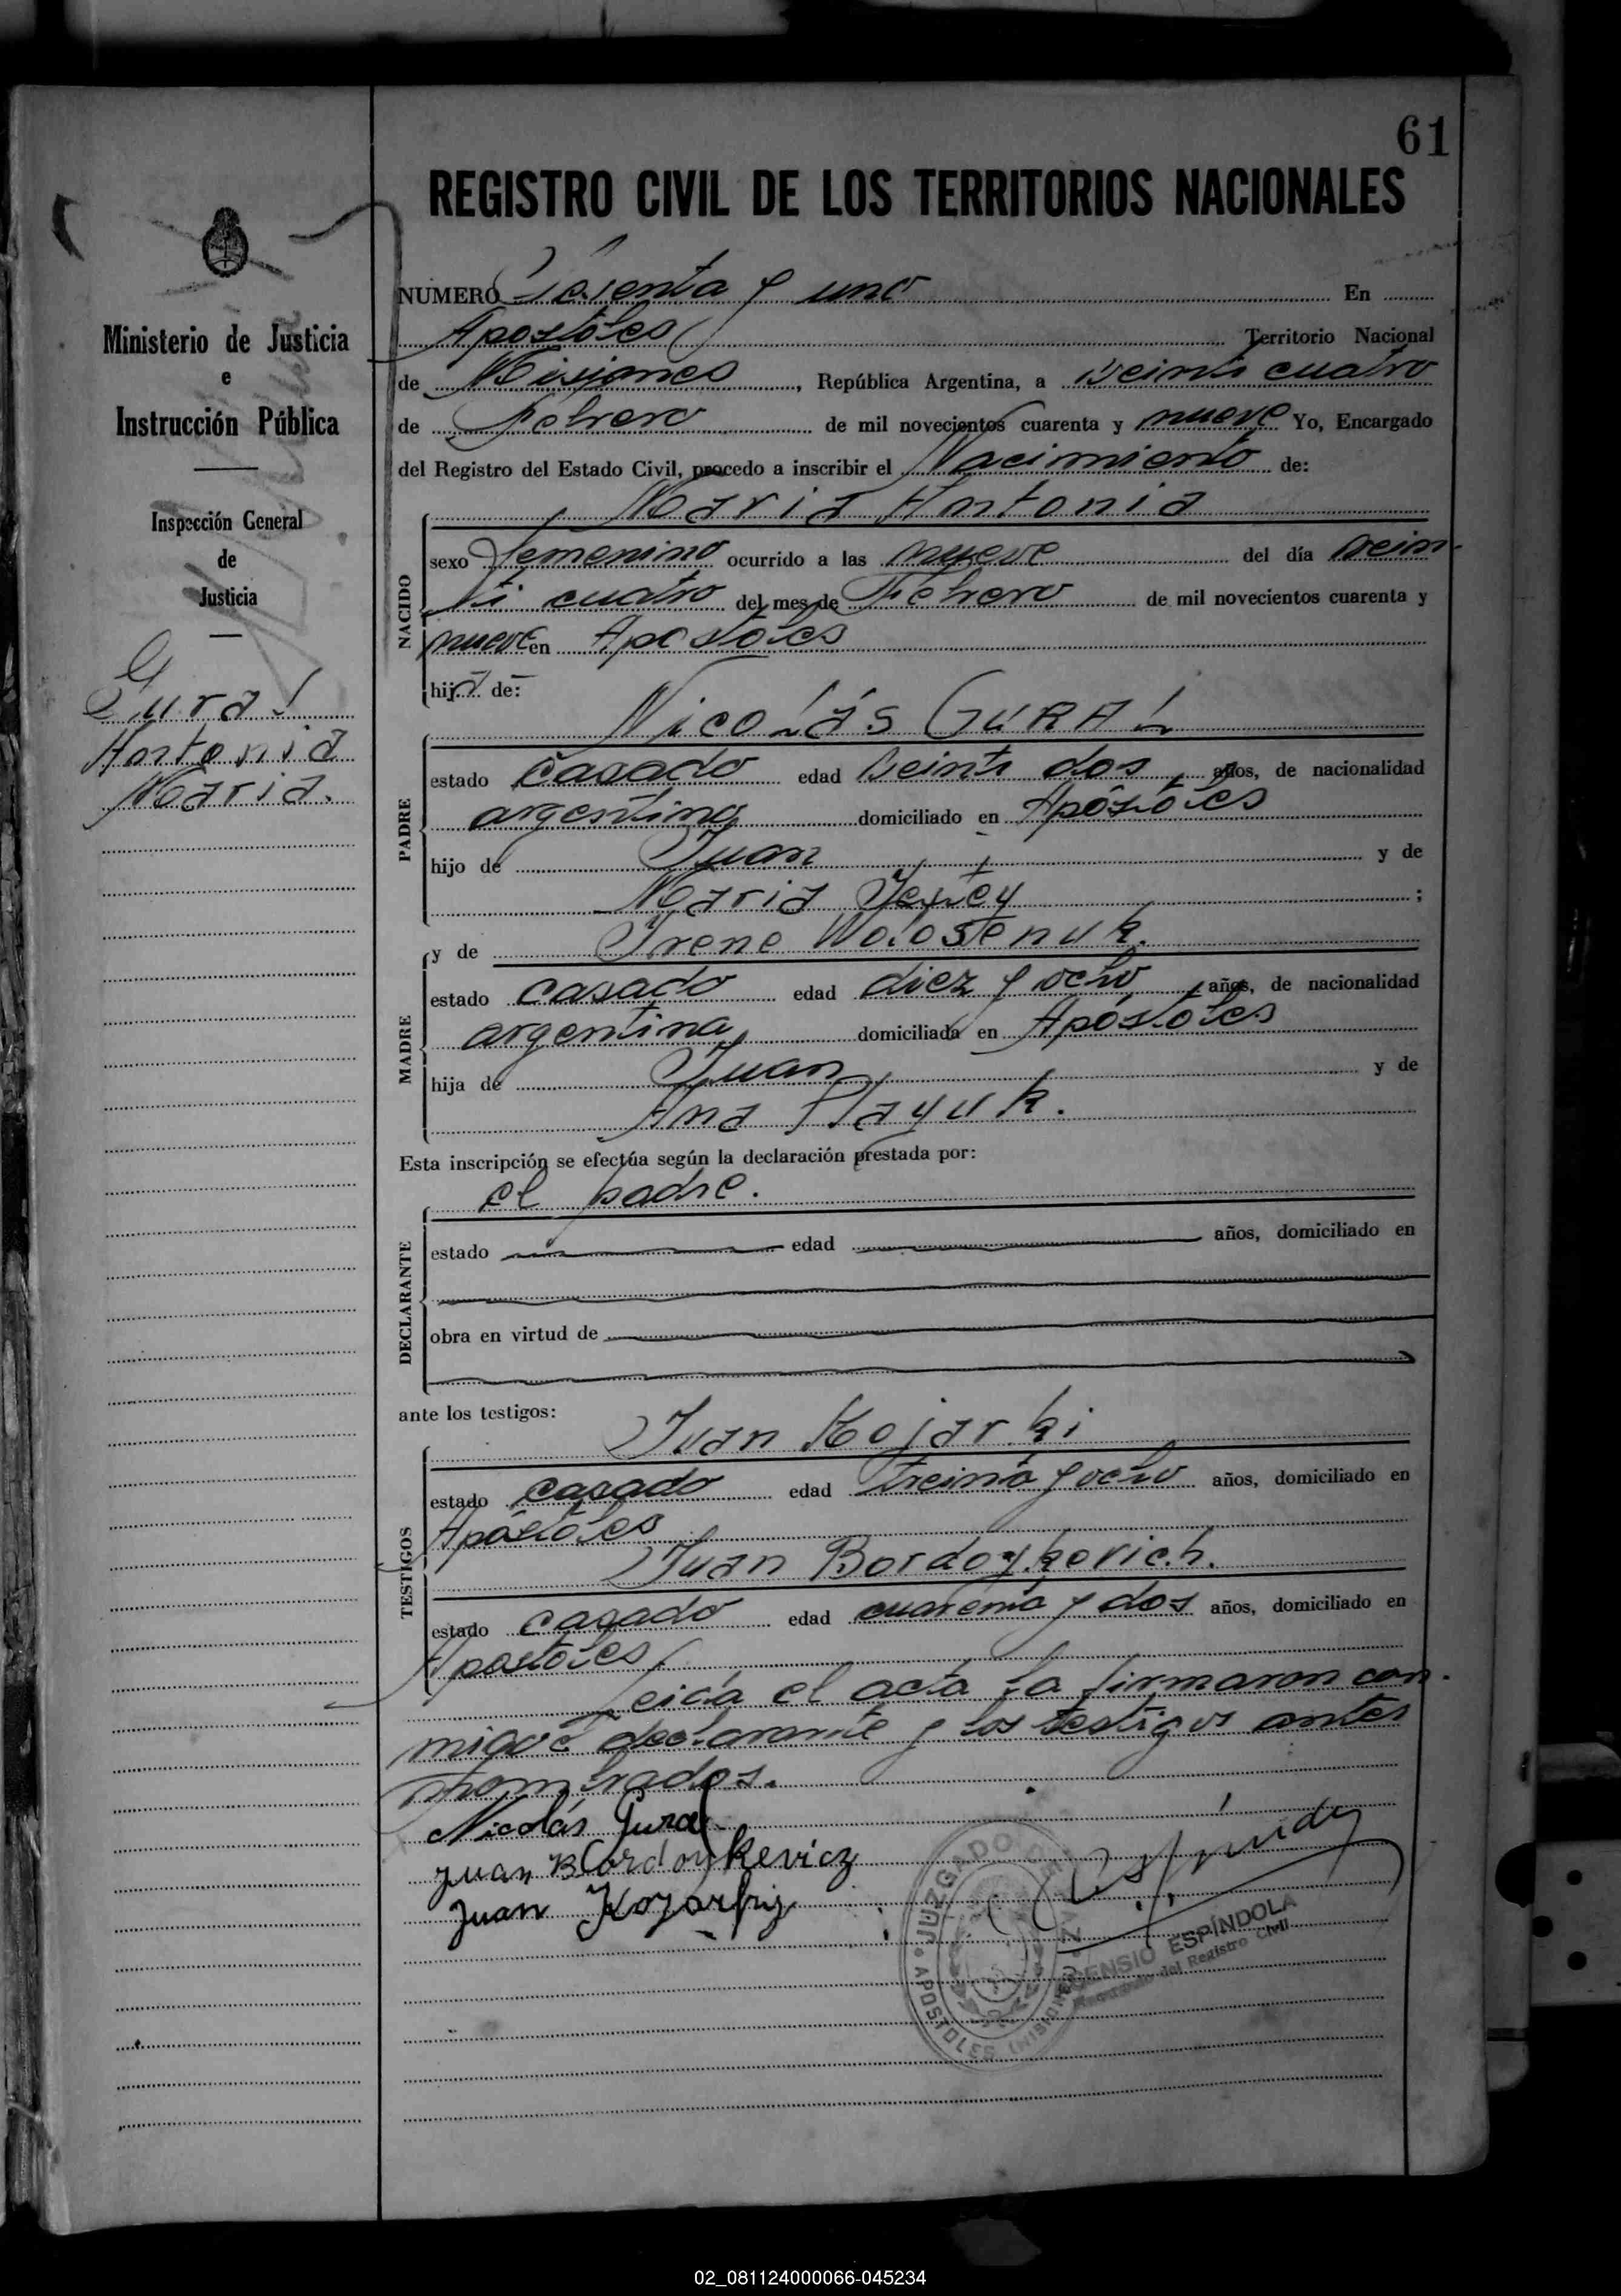 61
REGISTRO CIVIL DE LOS TERRITORIOS NACIONALES
Ministerio de Justicia
e
Instrucción Pública
Inspección General
de
Justicia
Gural
Antonia
Maria.
NUMERO Sesenta y uno En
Apostoles Territorio Nacional
de Misiones, República Argentina, a veinti cuatro
de Febrero de mil novecientos cuarenta y nueve Yo, Encargado
del Registro del Estado Civil, procedo a inscribir el Nacimiento de:
Maria Antonia
NACIDO
sexo femenino ocurrido a las nueve del día vein
ti cuatro del mes de Febrero de mil novecientos cuarenta y
nueve en Apostoles
hija de:
Nicolás GURAL
PADRE
estado casado edad veinti dos años, de nacionalidad
argentina domiciliado en Apóstoles
hijo de Juan y de
Maria ;
y de Irene Wolostenuk.
MADRE
estado casado edad diez y ocho años, de nacionalidad
argentina domiciliada en Apóstoles
hija de Juan y de
Ana
Esta inscripción se efectúa según la declaración prestada por:
el padre.
DECLARANTE
estado edad años, domiciliado en
obra en virtud de
ante los testigos:
Juan Kojarki
TESTIGOS
estado casado edad treinta y ocho años, domiciliado en
Apóstoles
Juan Bordoykevich.
estado casado edad cuarenta y dos años, domiciliado en
Apostoles
Leida el acta la firmaron con
migo el declarante y los testigos antes
nombrados.
Nicolás Gural
Juan Bordoykevicz
Juan
JUZGADO DE PAZ
APOSTOLES (MISIONES)
ASCENSIO ESPÍNDOLA
Encargado del Registro Civil
02_081124000066-045234